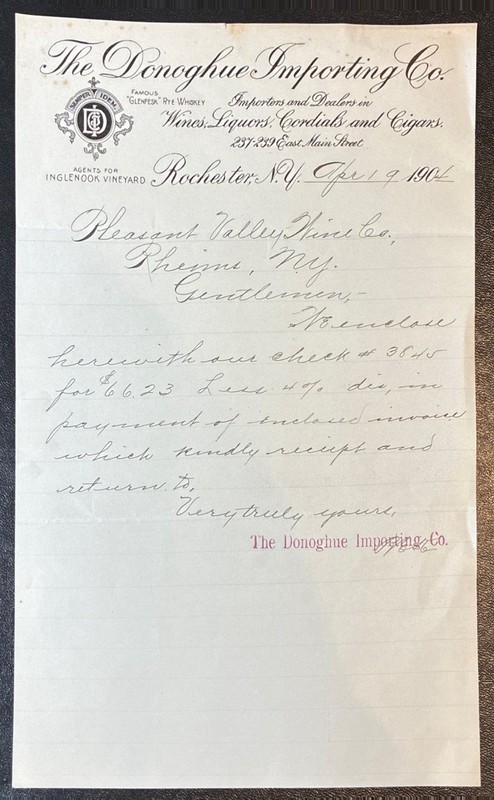 The Donoghue Importing Co.
SEMPER IDEM
FAMOUS
"GLENPESK" RYE WHISKEY
Importers and Dealers in
Wines, Liquors, Cordials and Cigars.
237-239 East Main Street
AGENTS FOR
INGLENOOK VINEYARD
Rochester, N.Y. Apr 19 1904
Pleasant Valley Wine Co.,
Rheims, N.Y.
Gentlemen,-
We enclose
herewith our check # 3845
for $66.23 Less 4% dis, in
payment of enclosed invoice
which kindly receipt and
return to,
Very truly yours,
The Donoghue Importing Co.